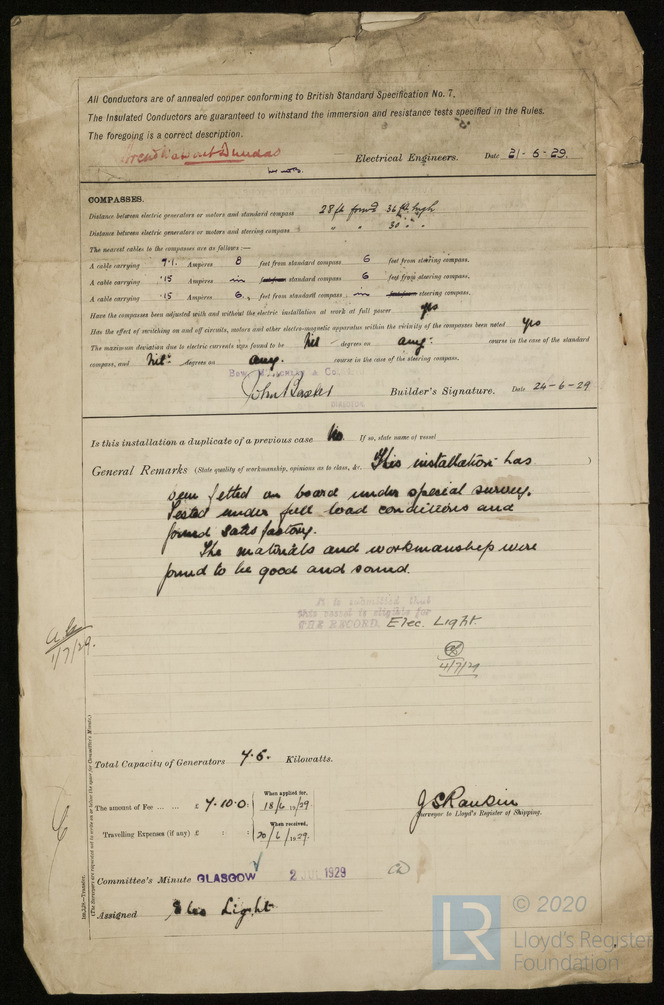 All Conductors are of annealed copper conforming to British Standard Specification No. 7.
The Insulated Conductors are guaranteed to withstand the immersion and resistance tests specified in the Rules.
The foregoing is a correct description.
Dundas
Electrical Engineers. Date 21-6-29.
COMPASSES.
Distance between electric generators or motors and standard compass 28 ft 36 ft high
Distance between electric generators or motors and steering compass " " 30 " "
The nearest cables to the compasses are as follows:—
A cable carrying 7.1. Ampères 8 feet from standard compass 6 feet from steering compass.
A cable carrying .15 Ampères in feet from standard compass 6 feet from steering compass.
A cable carrying .15 Ampères 6. feet from standard compass in feet from steering compass.
Have the compasses been adjusted with and without the electric installation at work at full power yes
Has the effect of switching on and off circuits, motors and other electro-magnetic apparatus within the vicinity of the compasses been noted yes
The maximum deviation due to electric currents was found to be Nil degrees on any course in the case of the standard
compass, and Nil degrees on any. course in the case of the steering compass.
Builder's Signature. Date 24-6-29
Is this installation a duplicate of a previous case No If so, state name of vessel
General Remarks (State quality of workmanship, opinions as to class, &c. This installation has )
been fitted on board under special survey.
Tested under full load conditions and
found satisfactory.
The materials and workmanship were
found to be good and sound.
It is submitted that
this vessel is eligible for
THE RECORD. Elec. Light.
4/7/29
1/7/29.
Total Capacity of Generators 7.5. Kilowatts.
The amount of Fee ... ... £ 7.10.0: When applied for, 18/6 1929
Travelling Expenses (if any) £ : : When received, 20/6/1929.
J S Rankin
Surveyor to Lloyd's Register of Shipping.
Committee's Minute GLASGOW 2 JUL 1929
Assigned Elec Light
(The Surveyors are requested not to write on or below the space for Committee's Minute.)
LR © 2020
Lloyd's Register
Foundation